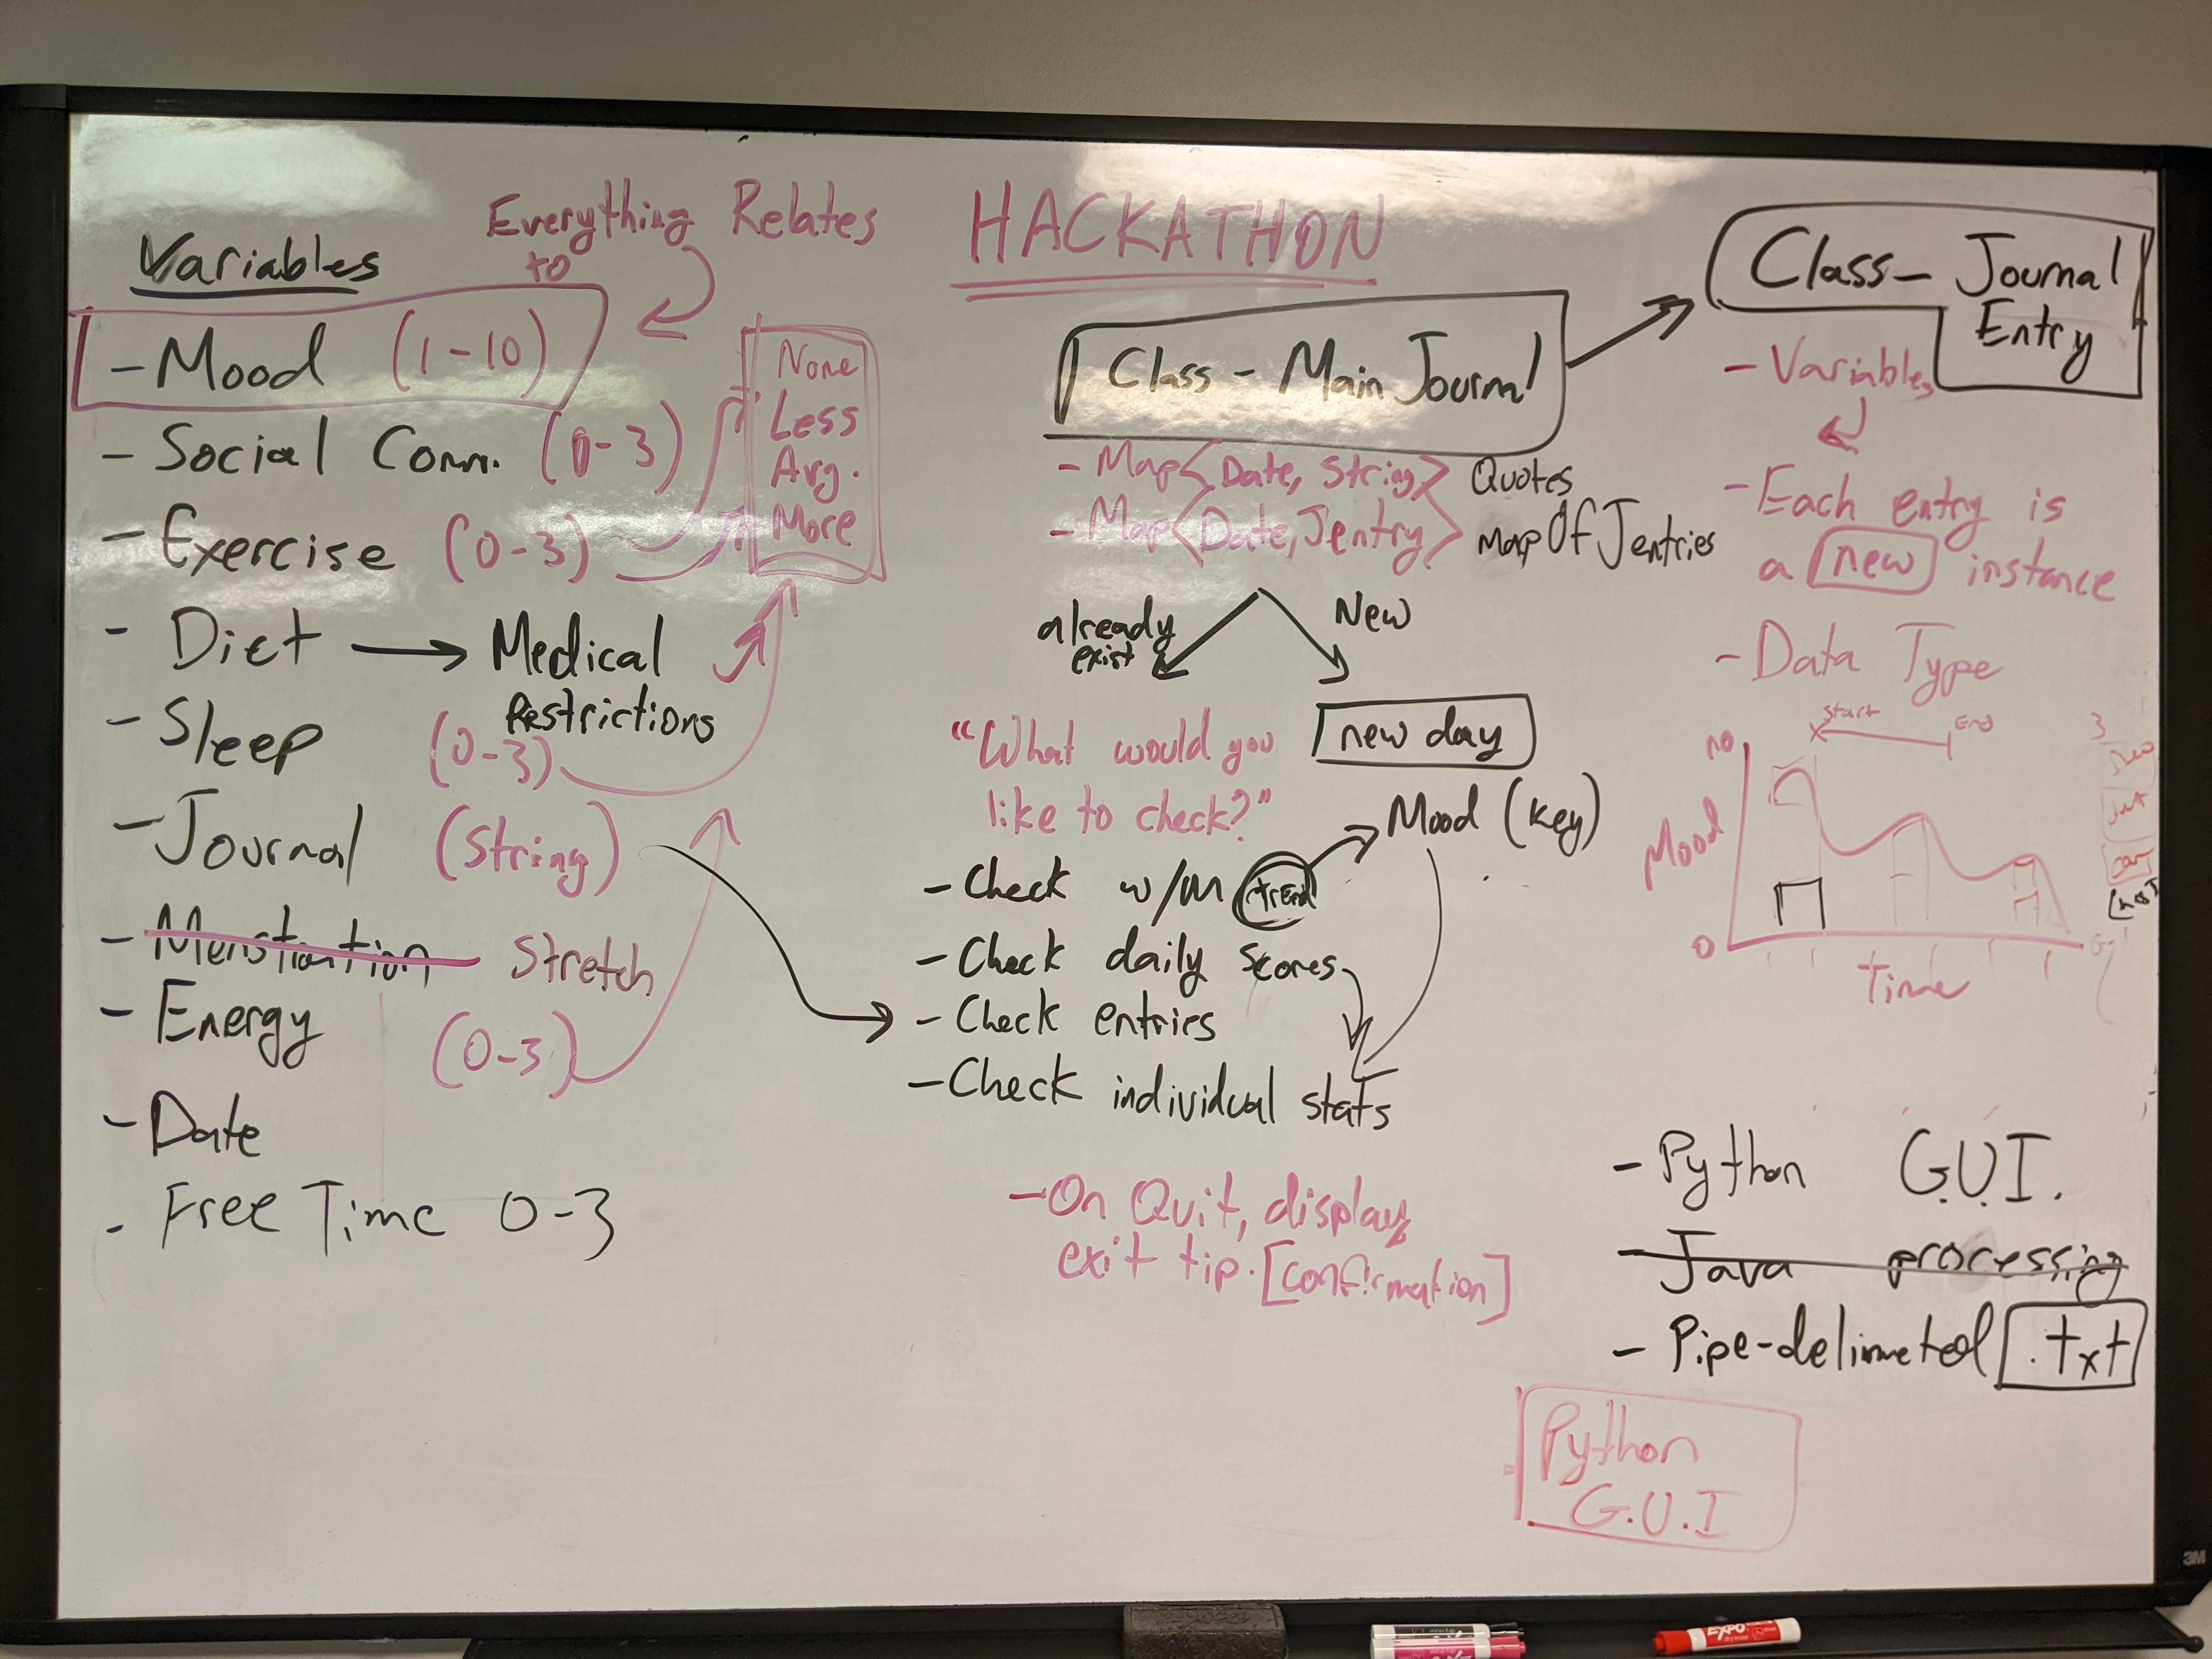 HACKATHON
Everything Relates
to
Variables
- Mood (1-10)
- Social Comm. (0-3)
- Exercise (0-3)
- Diet → Medical
Restrictions
- Sleep (0-3)
- Journal (String)
- Menstruation Stretch
- Energy (0-3)
- Date
- Free Time 0-3
None
Less
Avg.
More
Class - Main Journal
- Map<Date, String> Quotes
- Map<Date, Jentry> mapOfJentries
already
exist
New
"What would you
like to check?"
new day
Mood (key)
- Check w/m trend
- Check daily scores
- Check entries
- Check individual stats
- On Quit, display
exit tip. [confirmation]
Class - Journal
Entry
- Variables
- Each entry is
a new instance
- Data Type
Start
End
10
Mood
0
Time
3
- Python G.U.I.
- Java processing
- Pipe-delimeted .txt
Python
G.U.I
3M
EXPO